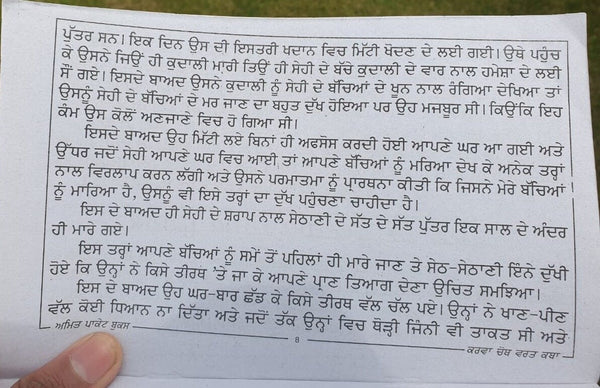 ਪੁੱਤਰ ਸਨ। ਇਕ ਦਿਨ ਉਸ ਦੀ ਇਸਤਰੀ ਖਦਾਨ ਵਿਚ ਮਿੱਟੀ ਖੋਦਣ ਦੇ ਲਈ ਗਈ। ਉਥੇ ਪਹੁੰਚ
ਕੇ ਉਸਨੇ ਜਿਉਂ ਹੀ ਕੁਦਾਲੀ ਮਾਰੀ ਤਿਉਂ ਹੀ ਸੇਹੀ ਦੇ ਬੱਚੇ ਕੁਦਾਲੀ ਦੇ ਵਾਰ ਨਾਲ ਹਮੇਸ਼ਾ ਦੇ ਲਈ
ਸੌਂ ਗਏ। ਇਸਦੇ ਬਾਅਦ ਉਸਨੇ ਕੁਦਾਲੀ ਨੂੰ ਸੇਹੀ ਦੇ ਬੱਚਿਆਂ ਦੇ ਖੂਨ ਨਾਲ ਰੰਗਿਆ ਦੇਖਿਆ ਤਾਂ
ਉਸਨੂੰ ਸੇਹੀ ਦੇ ਬੱਚਿਆਂ ਦੇ ਮਰ ਜਾਣ ਦਾ ਬਹੁਤ ਦੁੱਖ ਹੋਇਆ ਪਰ ਉਹ ਮਜਬੂਰ ਸੀ। ਕਿਉਂਕਿ ਇਹ
ਕੰਮ ਉਸ ਕੋਲੋਂ ਅਣਜਾਣੇ ਵਿਚ ਹੋ ਗਿਆ ਸੀ।
ਇਸਦੇ ਬਾਅਦ ਉਹ ਮਿੱਟੀ ਲਏ ਬਿਨਾਂ ਹੀ ਅਫਸੋਸ ਕਰਦੀ ਹੋਈ ਆਪਣੇ ਘਰ ਆ ਗਈ ਅਤੇ
ਉੱਧਰ ਜਦੋਂ ਸੇਹੀ ਆਪਣੇ ਘਰ ਵਿਚ ਆਈ ਤਾਂ ਆਪਣੇ ਬੱਚਿਆਂ ਨੂੰ ਮਰਿਆ ਦੇਖ ਕੇ ਅਨੇਕ ਤਰ੍ਹਾਂ
ਨਾਲ ਵਿਰਲਾਪ ਕਰਨ ਲੱਗੀ ਅਤੇ ਉਸਨੇ ਪਰਮਾਤਮਾ ਨੂੰ ਪ੍ਰਾਰਥਨਾ ਕੀਤੀ ਕਿ ਜਿਸਨੇ ਮੇਰੇ ਬੱਚਿਆਂ
ਨੂੰ ਮਾਰਿਆ ਹੈ, ਉਸਨੂੰ ਵੀ ਇਸੇ ਤਰ੍ਹਾਂ ਦਾ ਦੁੱਖ ਪਹੁੰਚਣਾ ਚਾਹੀਦਾ ਹੈ।
ਇਸ ਦੇ ਬਾਅਦ ਹੀ ਸੇਹੀ ਦੇ ਸ਼ਰਾਪ ਨਾਲ ਸੇਠਾਣੀ ਦੇ ਸੱਤ ਦੇ ਸੱਤ ਪੁੱਤਰ ਇਕ ਸਾਲ ਦੇ ਅੰਦਰ
ਹੀ ਮਾਰੇ ਗਏ।
ਇਸ ਤਰ੍ਹਾਂ ਆਪਣੇ ਬੱਚਿਆਂ ਨੂੰ ਸਮੇਂ ਤੋਂ ਪਹਿਲਾਂ ਹੀ ਮਾਰੇ ਜਾਣ ਤੇ ਸੇਠ-ਸੇਠਾਣੀ ਇੰਨੇ ਦੁੱਖੀ
ਹੋਏ ਕਿ ਉਨ੍ਹਾਂ ਨੇ ਕਿਸੇ ਤੀਰਥ 'ਤੇ ਜਾ ਕੇ ਆਪਣੇ ਪ੍ਰਾਣ ਤਿਆਗ ਦੇਣਾ ਉਚਿਤ ਸਮਝਿਆ।
ਇਸ ਦੇ ਬਾਅਦ ਉਹ ਘਰ-ਬਾਰ ਛੱਡ ਕੇ ਕਿਸੇ ਤੀਰਥ ਵੱਲ ਚੱਲ ਪਏ। ਉਨ੍ਹਾਂ ਨੇ ਖਾਣ-ਪੀਣ
ਵੱਲ ਕੋਈ ਧਿਆਨ ਨਾ ਦਿੱਤਾ ਅਤੇ ਜਦੋਂ ਤੱਕ ਉਨ੍ਹਾਂ ਵਿਚ ਥੋੜ੍ਹੀ ਜਿੰਨੀ ਵੀ ਤਾਕਤ ਸੀ ਅਤੇ
ਅਮਿਤ ਪਾਕੇਟ ਬੁਕਸ
8
ਕਰਵਾ ਚੌਥ ਵਰਤ ਕਥਾ